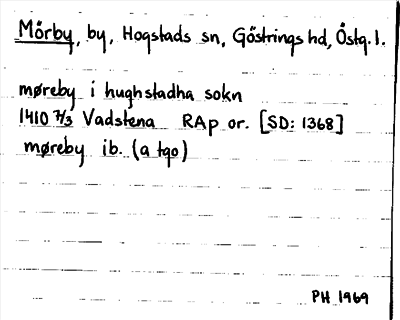 Mörby, by, Hogstads sn, Göstrings hd, Östg. l.
møreby i hughstadha sokn
1410 7/3 Vadstena RAp or. [SD: 1368]
møreby ib. (a tgo)
PH 1969